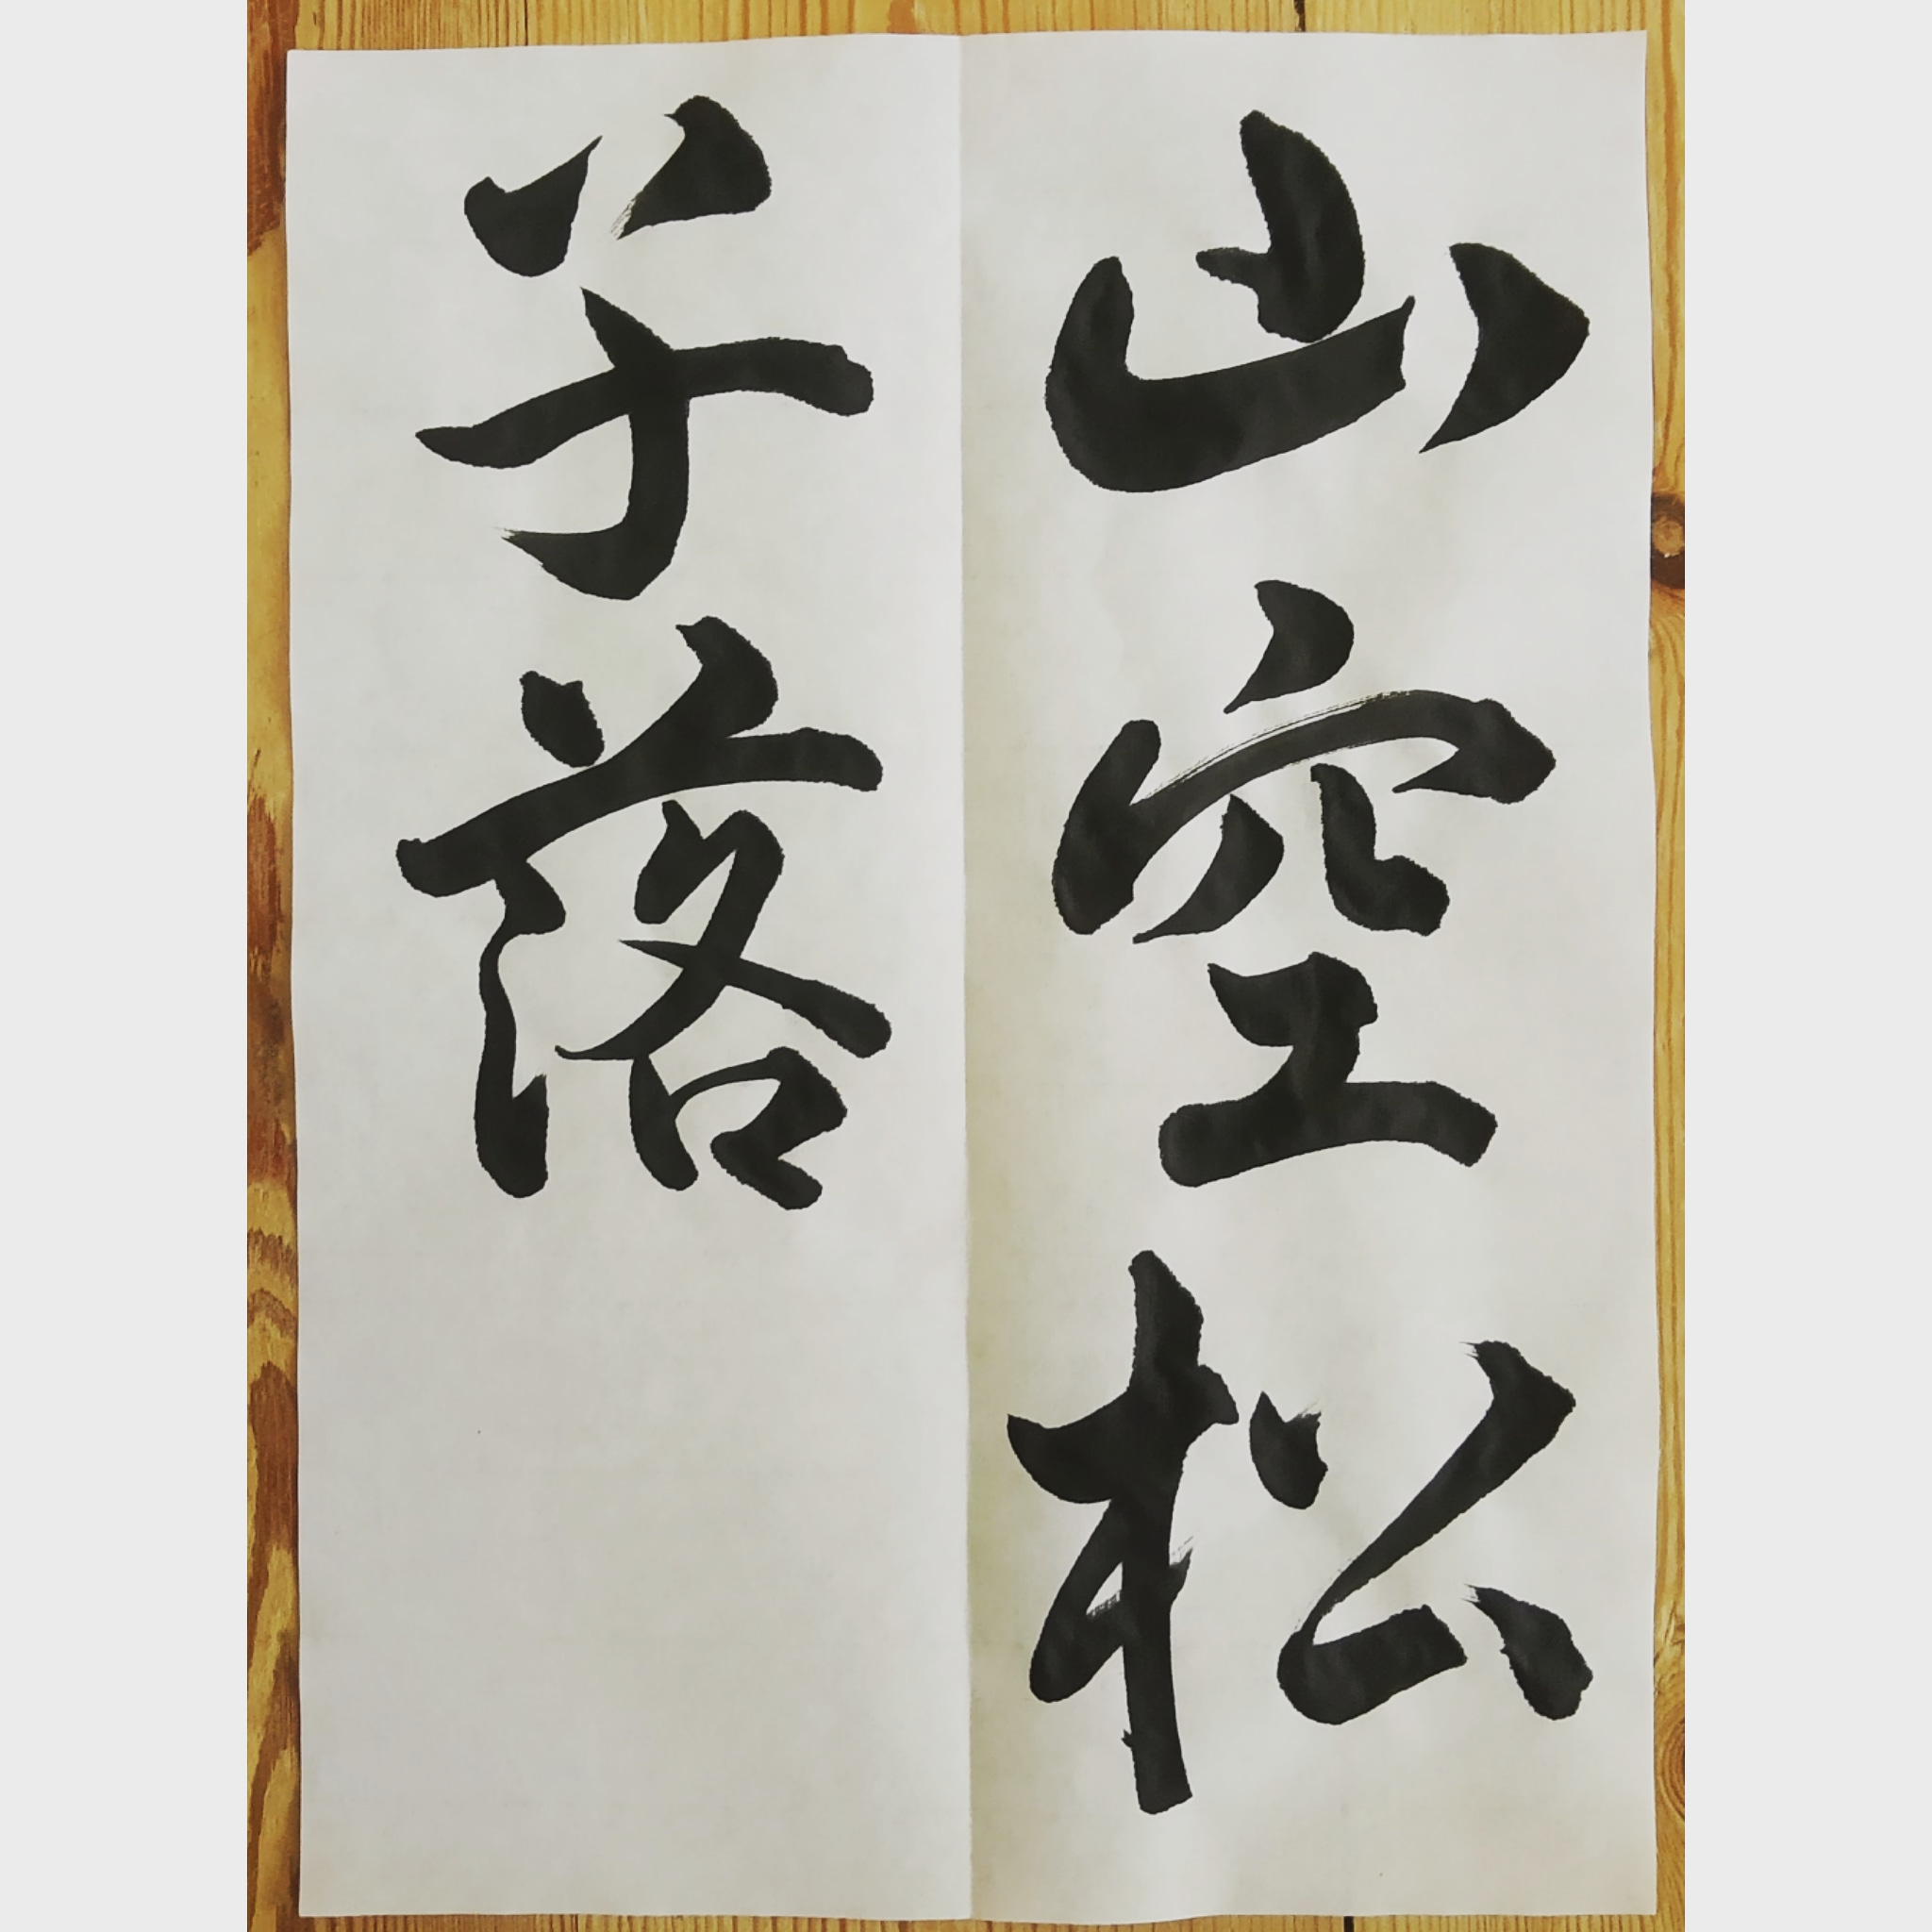 山空松
子落